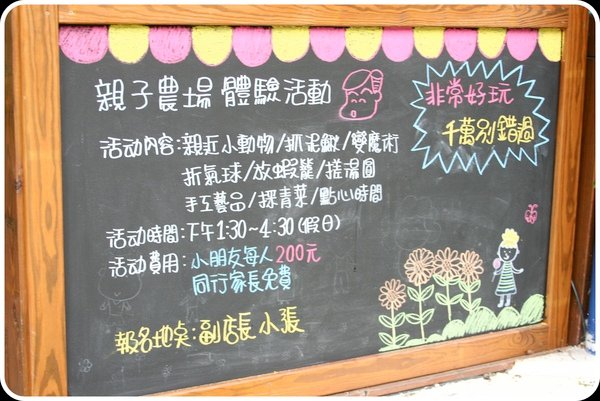 親子農場 體驗活動
非常好玩
千萬別錯過
活动內容:親近小動物/抓泥鰍/變魔術
折氣球/放蝦籠/搓湯圓
手工藝品/採青菜/點心時間
活动時間:下午1:30~4:30(假日)
活动費用:小朋友每人200元
同行家長免費
報名地点:副店長 小張